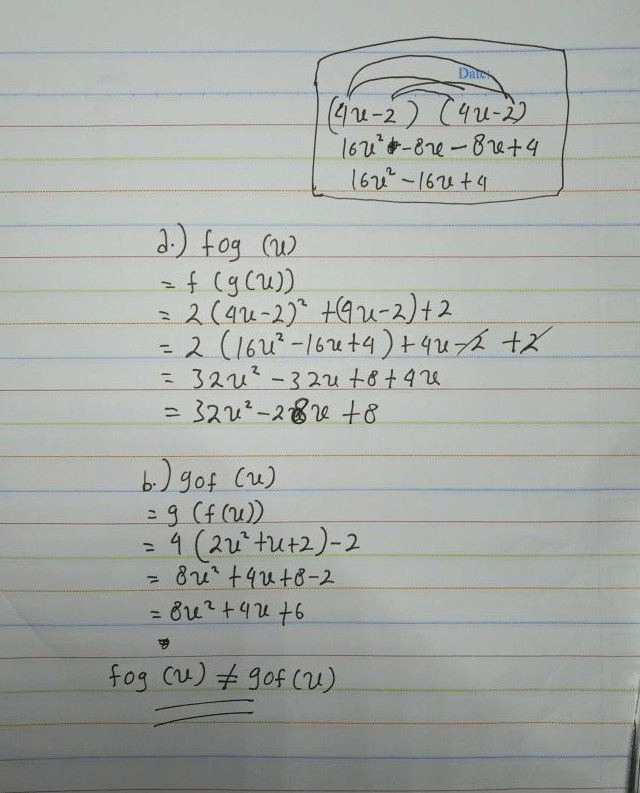 Date:
(4x-2) (4x-2)
16x² -8x - 8x+4
16x² -16x+4
a.) fog (x)
= f (g(x))
= 2(4x-2)² +(4x-2)+2
= 2 (16x² -16x+4)+4x-2 +2
= 32x² -32x +8+4x
= 32x² -28x +8
b.) gof (x)
= g (f(x))
= 4 (2x²+x+2)-2
= 8x² +4x+8-2
= 8x²+4x+6
fog (x) ≠ gof(x)